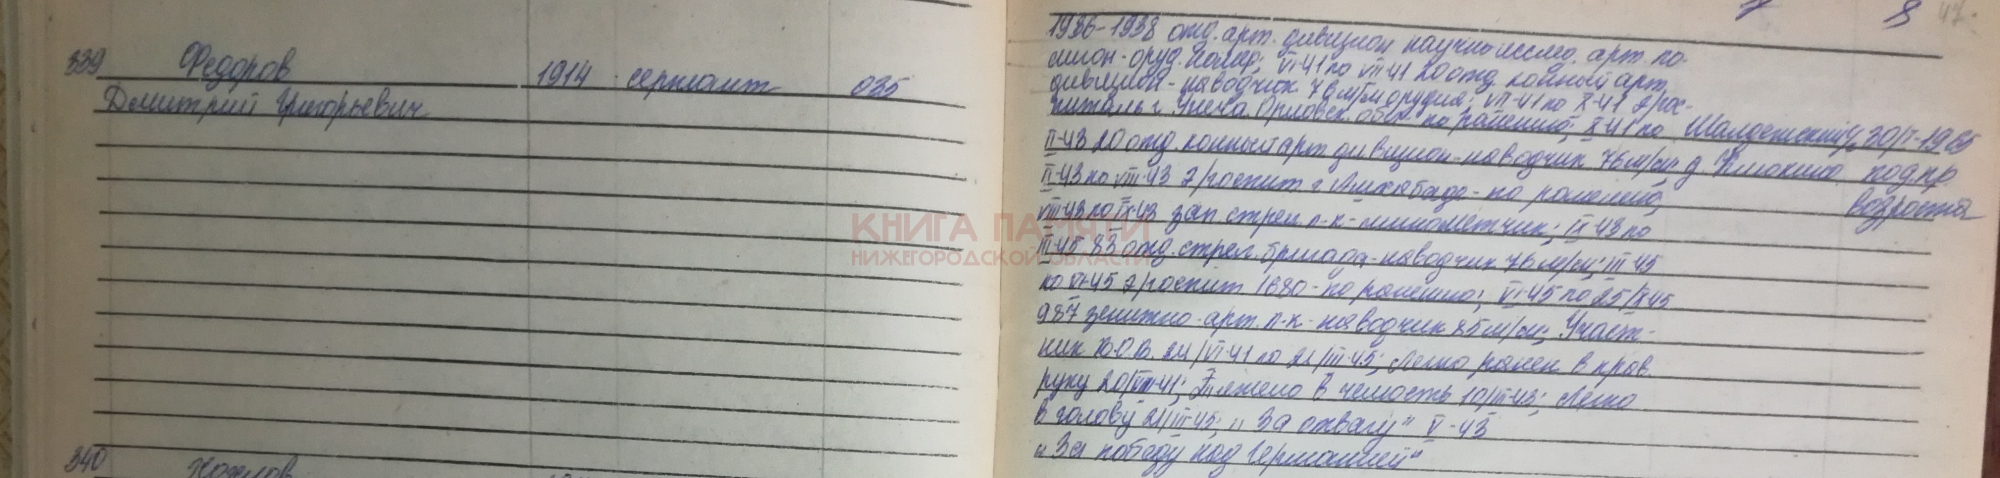 7 8 47.
339 Федоров 1914 сержант 035
Дмитрий Григорьевич
1936-1938 отд. арт. дивизион научно исслед. арт. по-
лигон - оруд. номер; VI-41 по VII-41 20 отд. конный арт.
дивизион - наводчик 76 м/м орудия; VII-41 по X-41 э/гос-
питаль г. Орловск. обл. по ранению; X-41 по
Шалдежский 30/I-1965
II-43 20 отд. конный арт. дивизион - наводчик 76 м/м д. подпр.
II-43 по VIII-43 э/госпит г. Ашхабад - по ранению,
возраста
VIII-43 по IX-43 зап. стрел. п-к - минометчик; IX-43 по
КНИГА ПАМЯТИ
НИЖЕГОРОДСКОЙ ОБЛАСТИ
III-45 83 отд. стрел. бригада - наводчик 76 м/м; III-45
по VI-45 э/госпит 1680 - по ранению; VI-45 по 25/X-45
987 зенитно-арт. п-к - наводчик 85 м/м; Участ-
ник В.О.В. 24/VI-41 по 21/III-45; Легко ранен в прав.
руку 20/VII-41; Тяжело в челюсть 10/II-43; Легко
в голову 21/III-45; „За отвагу" V-43
„За победу над Германией"
340